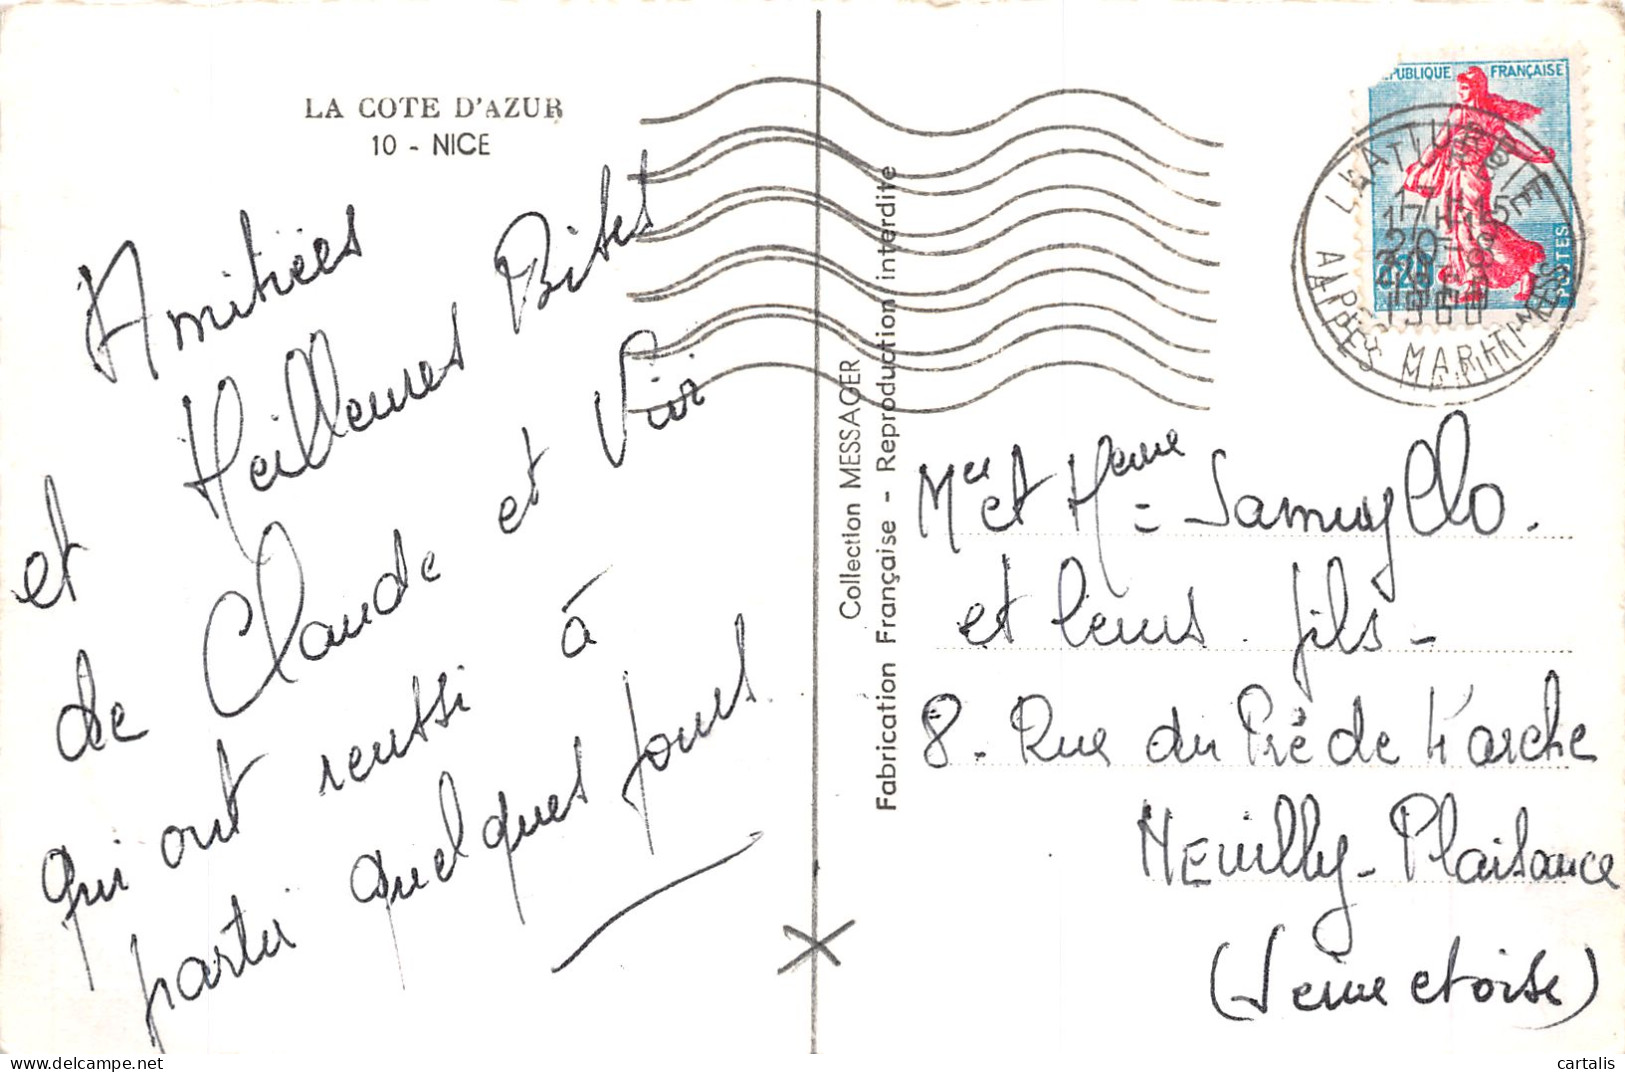 LA COTE D'AZUR
10 - NICE
Amitiées
et Meilleures Bises
de Claude et Vivi
qui ont reussi à
partir quelques jours
Collection MESSAGER
Fabrication Française - Reproduction interdite
REPUBLIQUE FRANÇAISE
POSTES
0,20
LA TURBIE
17H15
20
1960
ALPES MARITIMES
Mr et Mme
et leurs fils -
8 - Rue du Pré de Marche
NEuilly - Plaisance
(Seine et oise)
cartalis